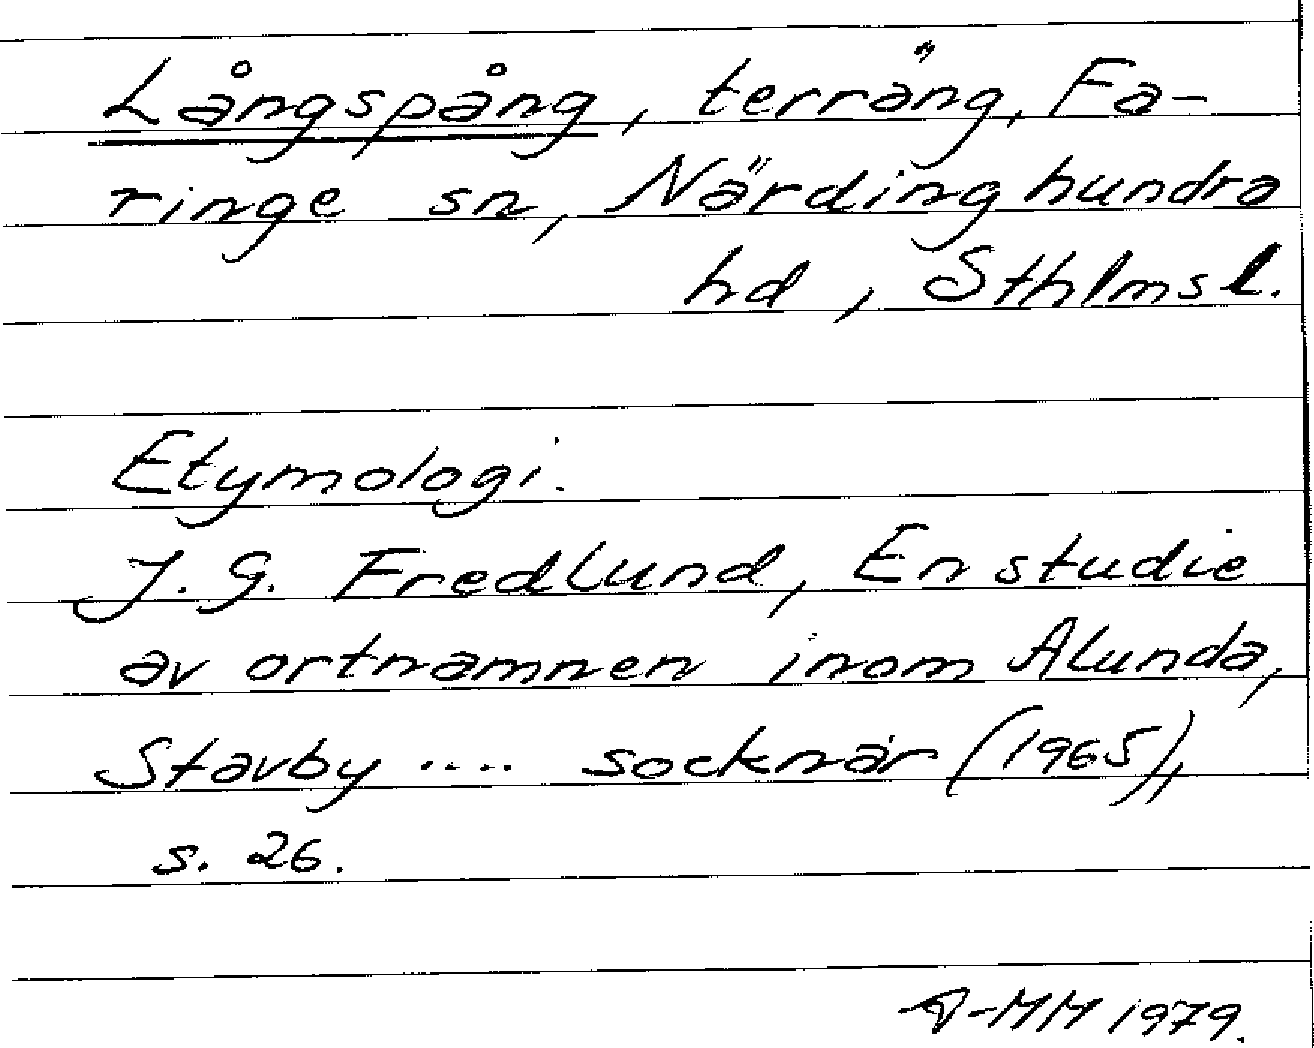 Långspång, terräng, Fa-
ringe sn, Närdinghundra
hd, Sthlms l.
Etymologi.
J. G. Fredlund, En studie
av ortnamnen inom Alunda,
Stavby .... socknar (1965),
s. 26.
A-MM 1979.